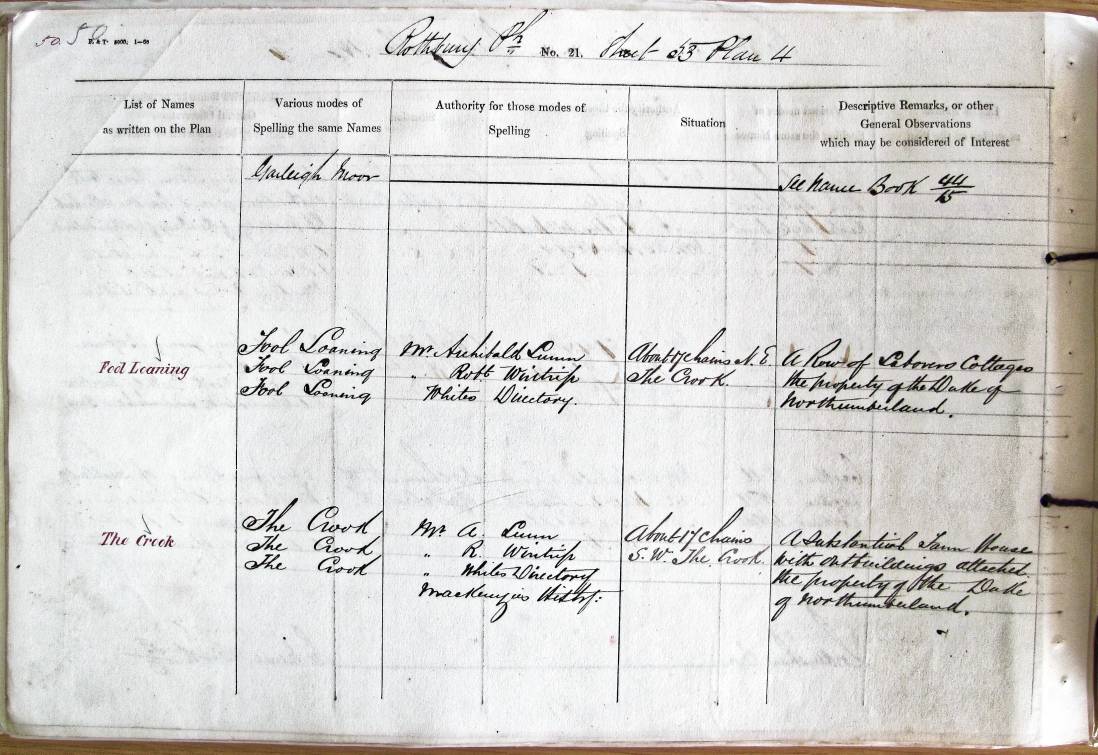 50. 50
Rothbury Ph No. 21. Sheet 53 Plan 4
List of Names
as written on the Plan
Various modes of
Spelling the same Names
Authority for those modes of
Spelling
Situation
Descriptive Remarks, or other
General Observations
which may be considered of Interest
Garleigh Moor
See Name Book 44/15
Fool Loaning
Fool Loaning
Fool Loaning
Mr. Archibald Lunn
" Robt. Wintrip
Whites Directory.
About 17 chains N. E.
The Crook.
A Row of Laborers Cottages
the property of the Duke of
Northumberland.
The Crook
The Crook
The Crook
The Crook
Mr. A. Lunn
" R. Wintrip
" Whites Directory
Mackenzies Histy:
About 17 chains
S. W. The Crook.
A substantial Farm House
with outbuildings attached
the property of the Duke
of Northumberland.